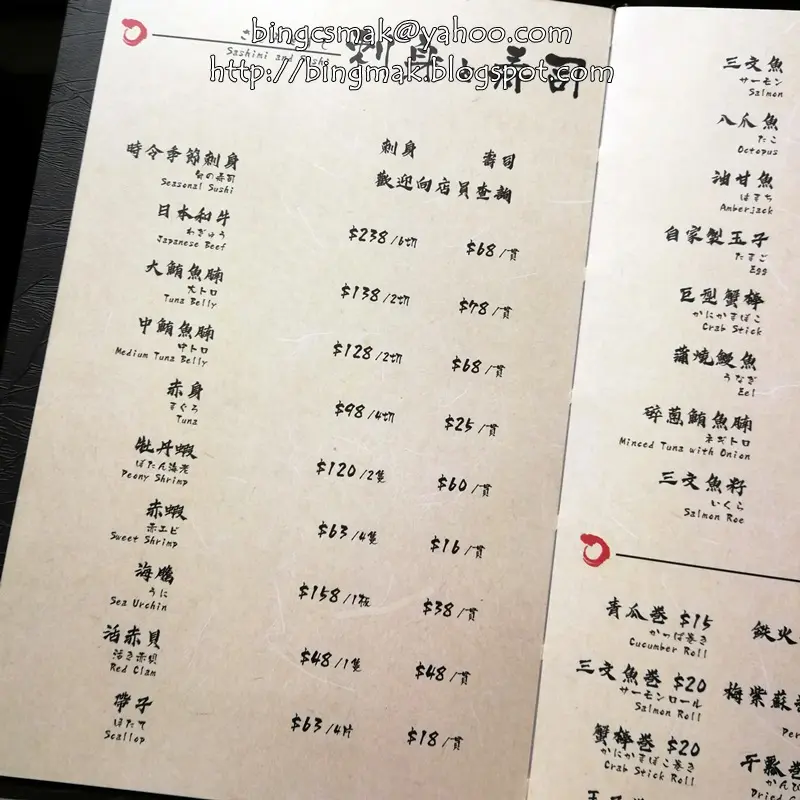 bingcsmak@yahoo.com
http://bingmak.blogspot.com
Sashimi and Sushi
刺身と寿司
刺身 壽司
時令季節刺身
旬の寿司
Seasonal Sushi
歡迎向店員查詢
日本和牛 $238/6切 $68/貫
わぎゅう
Japanese Beef
大鮪魚腩 $138/2切 $78/貫
大トロ
Tuna Belly
中鮪魚腩 $128/2切 $68/貫
中トロ
Medium Tuna Belly
赤身 $98/4切 $25/貫
すぐろ
Tuna
牡丹蝦 $120/2隻 $60/貫
ぼたん海老
Peony Shrimp
赤蝦 $63/4隻 $16/貫
赤エビ
Sweet Shrimp
海膽 $158/1板 $38/貫
うに
Sea Urchin
活赤貝 $48/1隻 $48/貫
活き赤貝
Red Clam
帶子 $63/4片 $18/貫
ほたて
Scallop
三文魚
サーモン
Salmon
八爪魚
たこ
Octopus
油甘魚
はまち
Amberjack
自家製玉子
たまご
Egg
巨型蟹棒
かにかまぼこ
Crab Stick
蒲燒鰻魚
うなぎ
Eel
碎蔥鮪魚腩
ネギトロ
Minced Tuna with Onion
三文魚籽
いくら
Salmon Roe
青瓜卷 $15
かっぱ巻き
Cucumber Roll
三文魚卷 $20
サーモンロール
Salmon Roll
蟹棒卷 $20
かにかまぼこ巻き
Crab Stick Roll
鉄火
梅紫蘇卷
Per
干瓢卷
かんぴ
Dried G